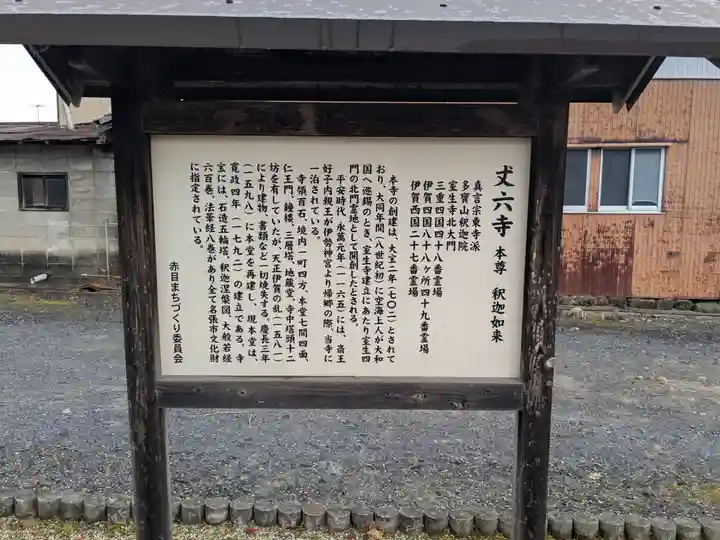 丈六寺 本尊 釈迦如来
真言宗東寺派
多寶山釈迦院
室生寺北大門
三重四国四十八番霊場
伊賀四国八十八ヶ所四十九番霊場
伊賀西国二十七番霊場
本寺の創建は、大宝二年(七〇二)とされて
おり、大同年間(八世紀初)に空海上人が大和
国へ巡錫のとき、室生寺建立にあたり室生四
門の北門霊地として開創したとされる。
平安時代、永萬元年(一一六五)には、斎王
好子内親王が伊勢神宮より帰郷の際、当寺に
一泊されている。
寺領百石、境内一町四方、本堂七間四面、
仁王門、鐘楼、三層塔、地蔵堂、寺中塔頭十二
坊を有していたが、天正伊賀の乱(一五八一)
により建物、書類など一切焼失する。慶長三年
(一五九八)に本堂を再建し、現本堂は、
寛政四年(一七九二)の建立である。寺
宝には、石造五輪塔、釈迦涅槃図、大般若経
六百巻、法華経八巻があり全て名張市文化財
に指定されている。
赤目まちづくり委員会